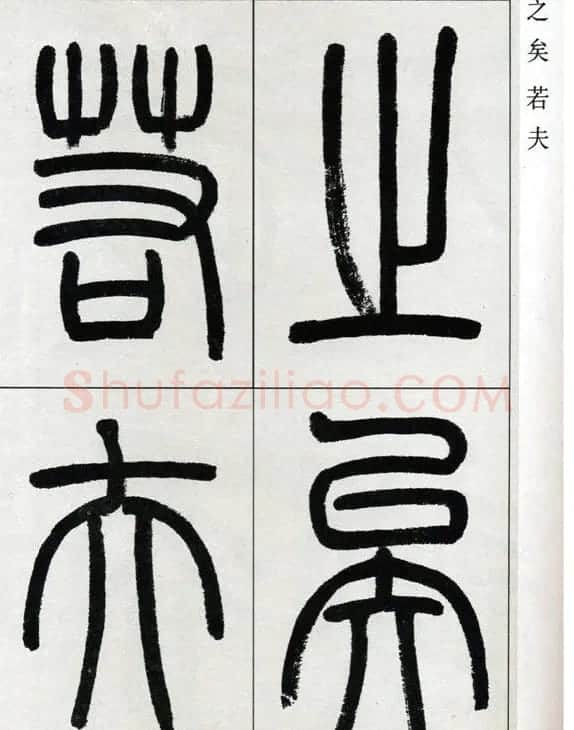 之矣若夫
之矣
若夫
Shufaziliao.COM